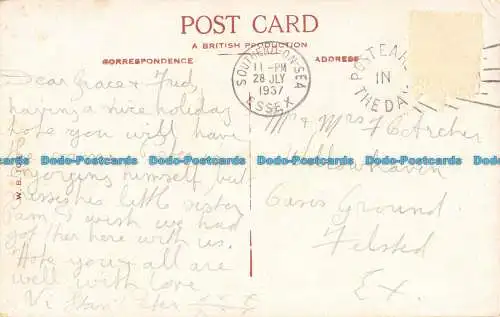 POST CARD
A BRITISH PRODUCTION
CORRESPONDENCE
ADDRESS
SOUTHEND-ON-SEA
11-PM
28 JLY
1937
ESSEX
POST EAR
IN
THE DA
Dear Grace & Fred,
having a nice holiday
hope you will have
the same
enjoying himself but
misses his little sister
Pam I wish we had
got her here with us.
Hope you all are
well with love
Vi Stan Peter xxx
Mr & Mrs F C Archer
Willowhaven
Oasis Ground.
Felsted
Ex.
W. B.
Dodo-Postcards.com Dodo-Postcards.com Dodo-Postcards.com Dodo-Postcards.com